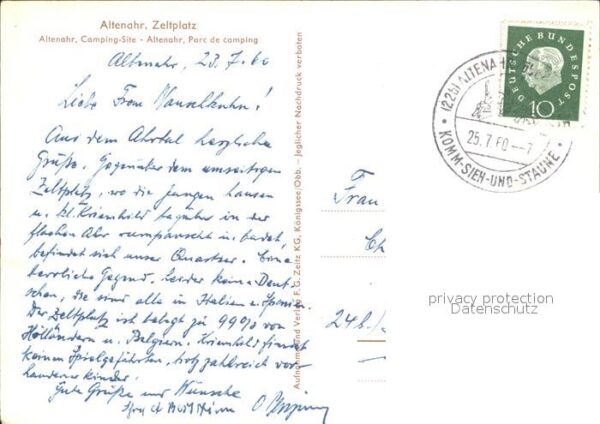 Altenahr, Zeltplatz
Altenahr, Camping-Site - Altenahr, Parc de camping
Altenahr, 23.7.60
Liebe Frau
Aus dem Ahrtal herzliche
Grüße. Gegenüber dem umseitigen
Zeltplatz, wo die Jungen hausen
u. kl. Kriemhild tagüber in der
flachen Ahr rumpanscht u. badet,
befindet sich unser Quartier. Eine
herrliche Gegend. Leider keine Deut-
schen, die sind alle in Italien u. Spanien.
Der Zeltplatz ist belegt zu 99% von
Holländern u. Belgiern. Kriemhild findet
keinen Spielgefährten, trotz zahlreich vor-
handener Kinder.
Gute Grüße und Wünsche
Aufnahme und Verlag F.G. Zeitz KG, Königssee/Obb. - Jeglicher Nachdruck verboten
DEUTSCHE BUNDESPOST
10
(22c) ALTENAHR
25.7.60
KOMM-SIEH-UND-STAUNE
Frau
privacy protection
Datenschutz